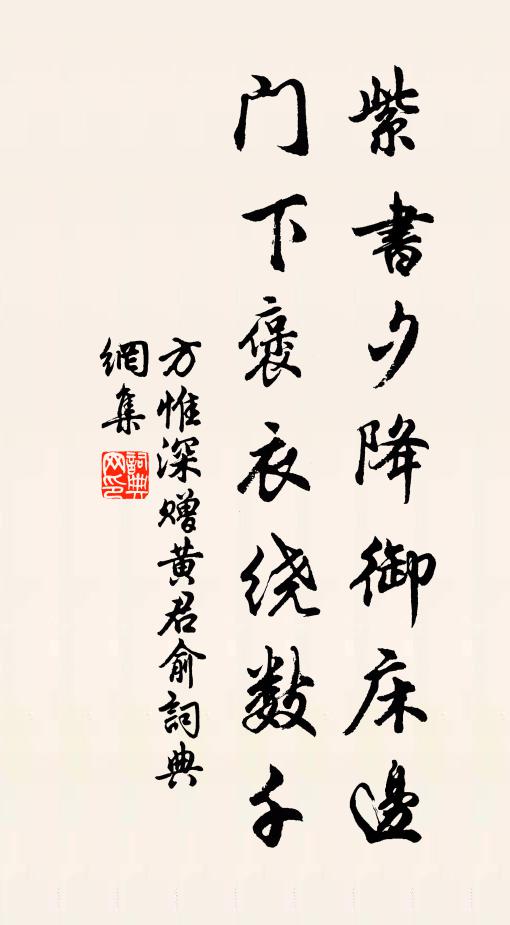 紫書夕降御床邊
门下褒衣绕数千
方惟深赠黄君俞詞典
網集
詞典
网印